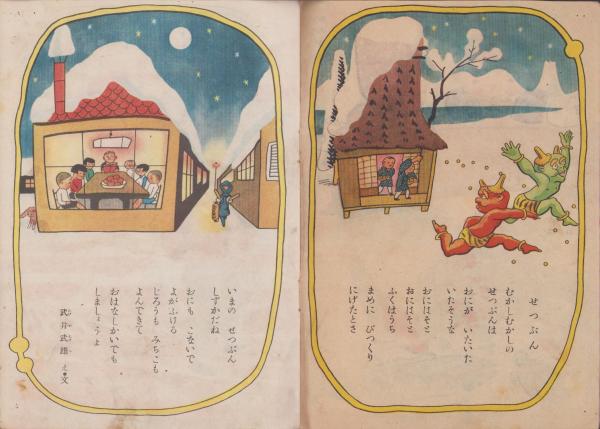 せつぶん
むかしむかしの
せつぶんは
おにが いたいた
いたそうな
おにはそと
おにはそと
ふくはうち
まめに びつくり
にげたとさ
いまの せつぶん
しずかだね
おにも こないで
よがふける
じろうも みちこも
よんできて
おはなしかいでも
しましょうよ
武井武雄 え・文